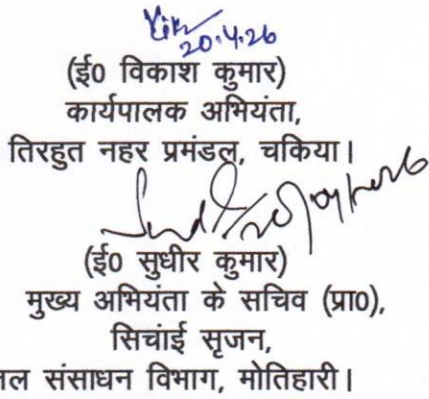 20.4.26
(ई0 विकाश कुमार)
कार्यपालक अभियंता,
तिरहुत नहर प्रमंडल, चकिया।
(ई0 सुधीर कुमार)
मुख्य अभियंता के सचिव (प्रा0),
सिचांई सृजन,
जल संसाधन विभाग, मोतिहारी।